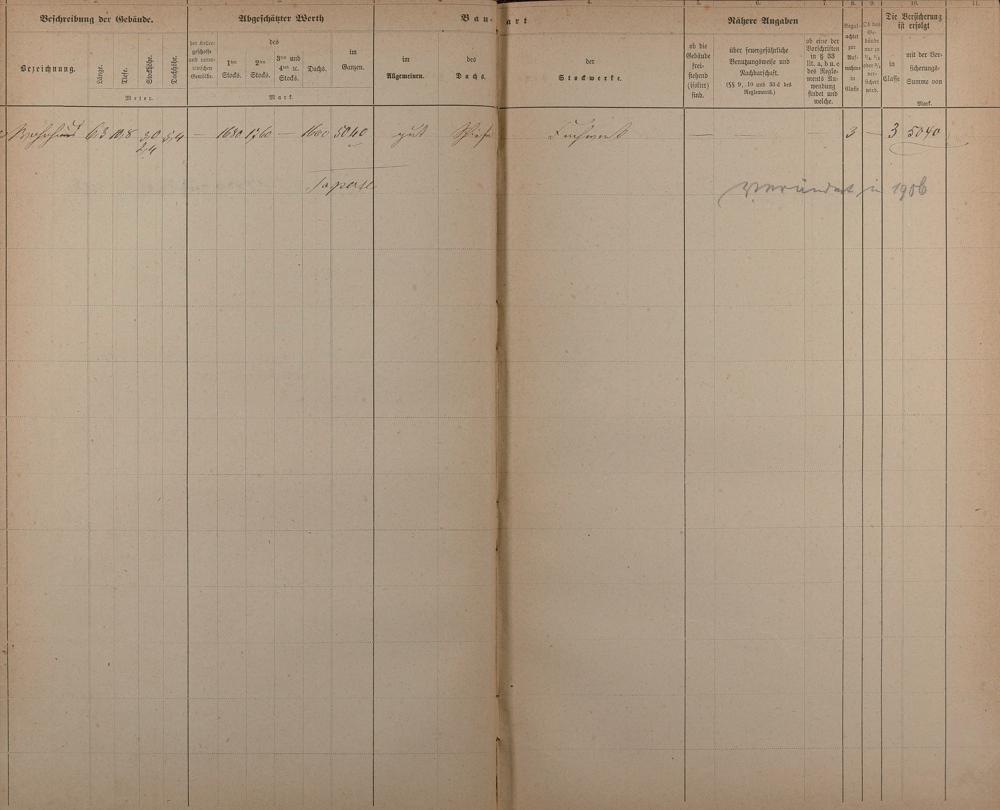 Beschreibung der Gebäude.
Abgeschätzter Werth
Bau-art
Nähere Angaben
Die Versicherung ist erfolgt
Bezeichnung.
Länge.
Tiefe.
Stockhöhe.
Dachhöhe.
Meter.
des
1ten Stocks.
2ten Stocks.
3ten und 4ten ꝛc. Stocks.
Dachs.
im Ganzen.
Mark.
im Allgemeinen.
des Dachs.
der Stockwerke.
ob die Gebäude freistehend (isolirt) sind.
über feuergefährliche Benutzungsweise und Nachbarschaft.
(§§ 9, 10 und 33 d des Reglements.)
ob eine der Vorschriften in § 33 lit. a, b u. c des Reglements Anwendung findet und welche.
in Classe
mit der Versicherungs-Summe von
Mark.
Wohnhaus 6,3 10,8 3,0 5,4 — 1680 1760 — 1600 5040 gut Schiefer Fachwerk — 3 — 3 5040
2,4
Verändert in 1906